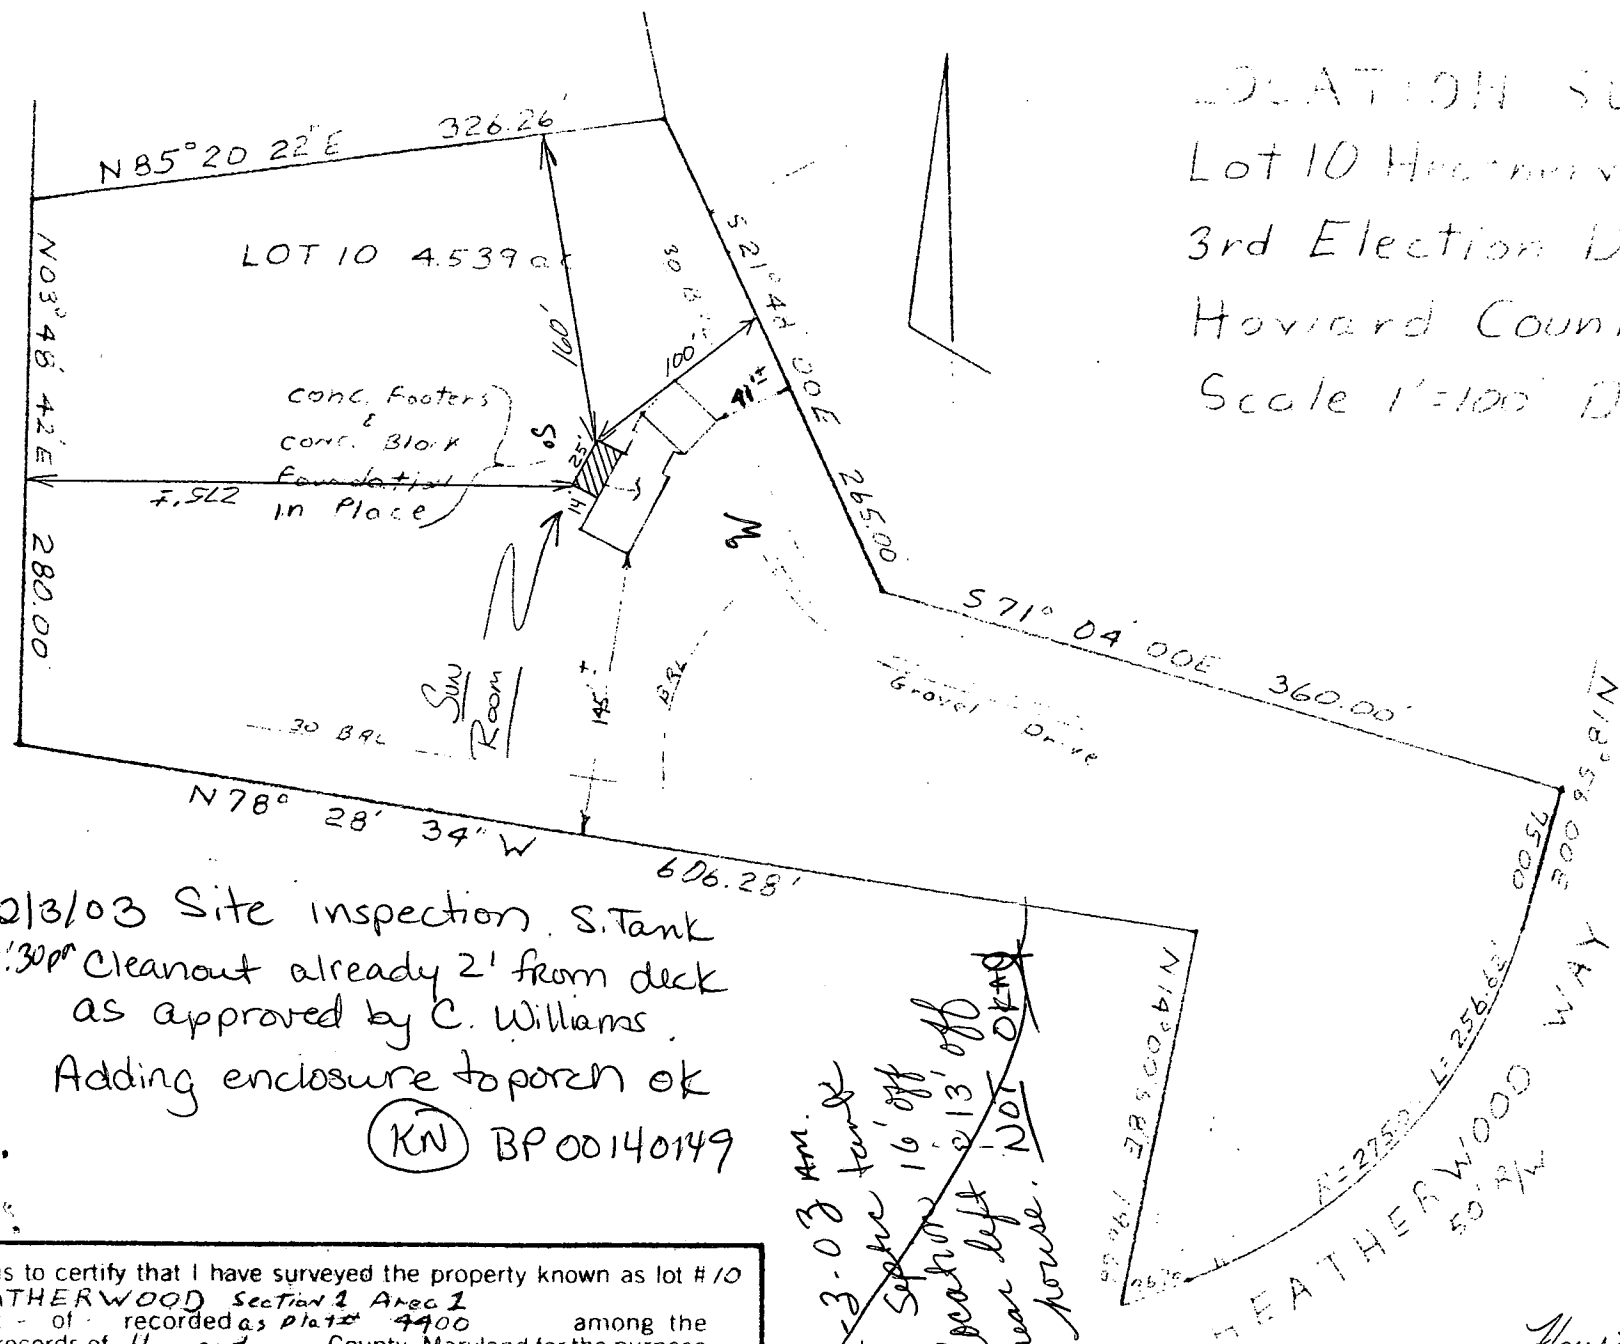 LOCATION SU
Lot 10
3rd Election D
Howard Coun
Scale 1"=100' D
N 85° 20 22" E 326.26'
LOT 10 4.539 ac
N 03° 48' 42" E 280.00
S 21° 44' 00E 265.00
30 B
160'
100'±
41'±
25'
14'
So
conc. Footers
&
conc. Block
Foundation
in Place
275'±
W
Sun
Room
145'±
BRL
30 BRL
Gravel Drive
S 71° 04' 00E 360.00'
N 18° 56 00E
75.00
N 78° 28' 34" W 606.28'
N 14° 00 58 E 196.
R=275.00 L=256.62'
HEATHERWOOD WAY
50' R/W
2/3/03 Site inspection. S. Tank
:30pm Cleanout already 2' from deck
as approved by C. Williams.
Adding enclosure to porch ok
KN BP00140149
3.03 Am.
Septic tank
location 16' off
rear left @ 13' off
house. NOT OKAY
s to certify that I have surveyed the property known as lot # 10
ATHERWOOD Section 1 Area 1
- of - recorded as Plat# 4400 among the
records of County, Maryland for the purpose